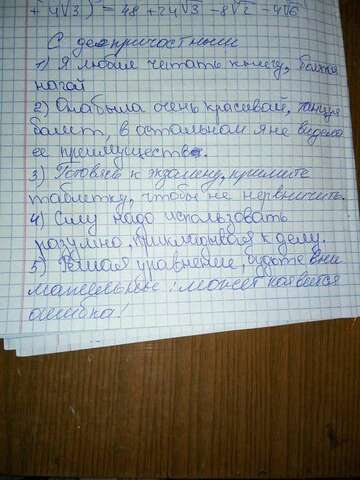 + 4√3) = 48 + 24√3 - 8√2 - 4√6
С деепричастными
1) Я люблю читать книгу, болтая
ногой
2) Она была очень красивой, танцуя
балет, в остальном я не видела
ее преимуществ.
3) Готовясь к экзамену, примите
таблетку, чтобы не нервничать.
4) Силу надо использовать
разумно, прикладывая к делу.
5) Решая уравнение, будьте вни
мательны: может появится
ошибка!